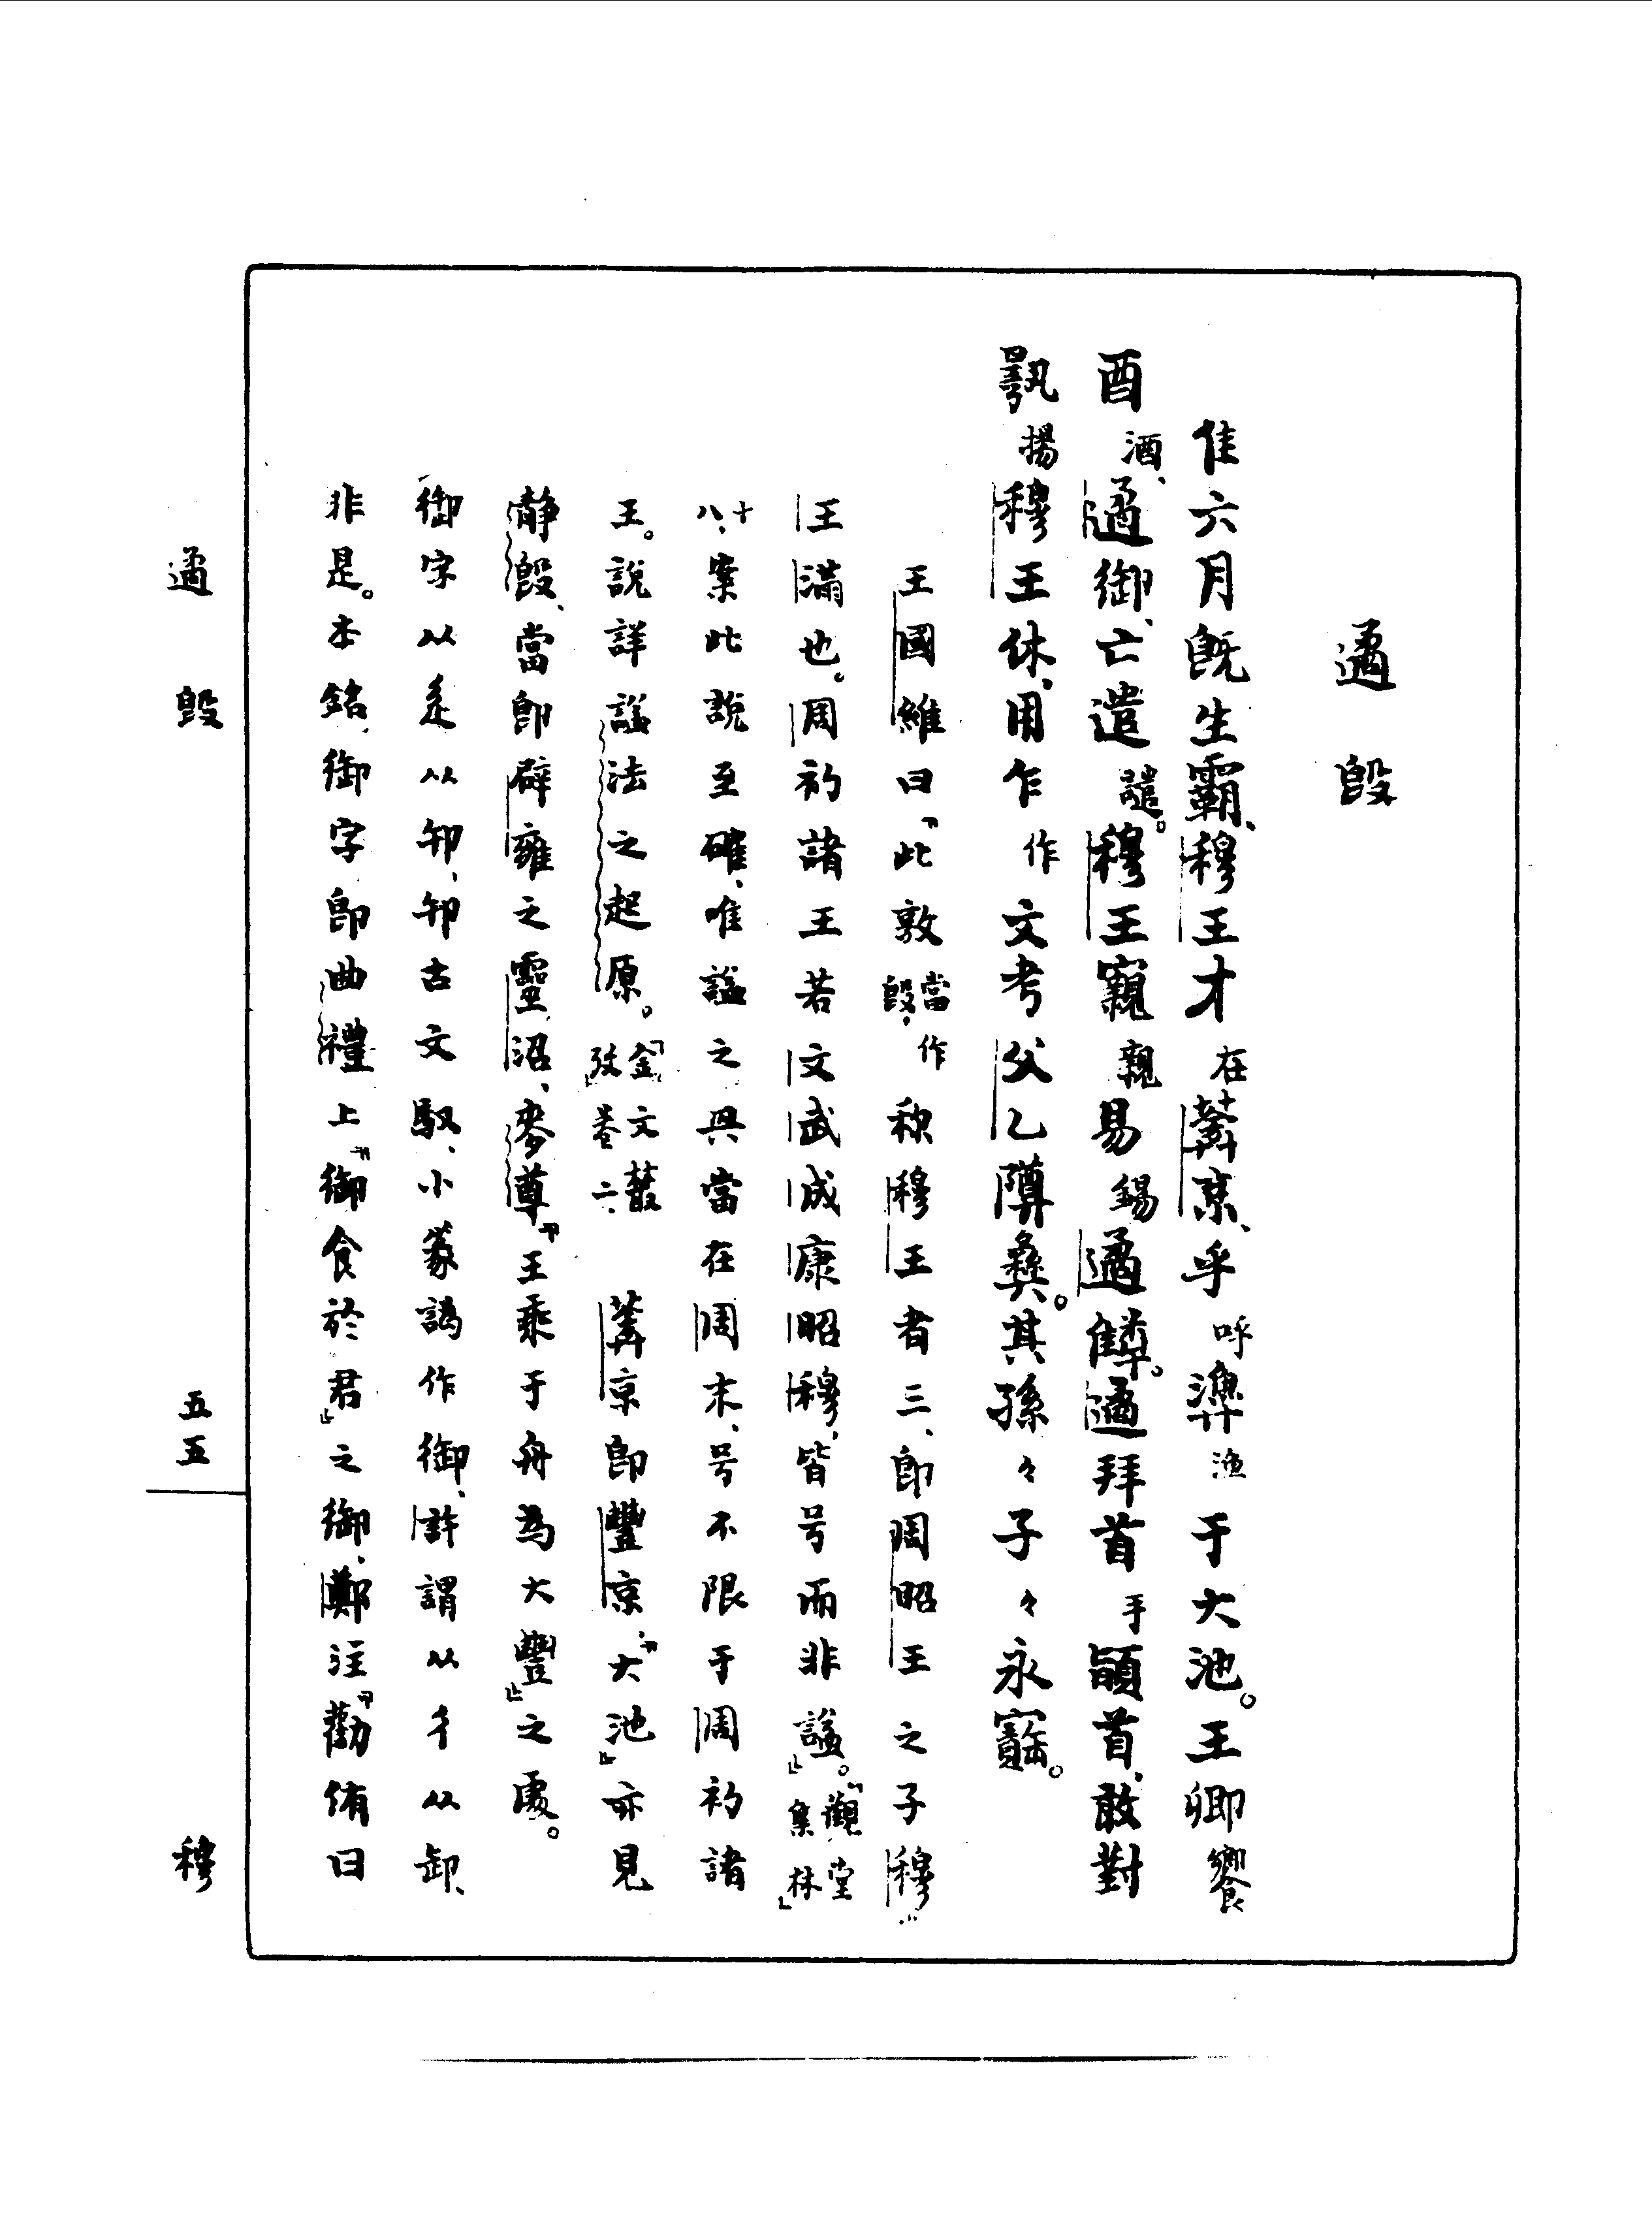 遹𣪘
隹六月旣生霸、穆王才在𦺇京、乎呼𤀯漁于大池。王卿饗
酉酒、遹御、亡遣譴。穆王寴親易錫遹𨿅。遹拜首手䭫首、敢對
揚穆王休、用乍作文考父乙𨺅彝。其孫々子々永寶。
王國維曰「此敦當作𣪘、称穆王者三、卽周昭王之子穆
王滿也。周初諸王若文武成康昭穆、皆号而非謚。」「觀堂集林」
十八、案此說至確、唯謚之興當在周末、号不限于周初諸
王。說詳謚法之起原。「金文叢攷」卷二、𦺇京卽豐京、「大池」亦見
靜𣪘、當卽辟雍之靈沼、麥尊「王乘于舟為大豐」之處。
御字从辵从卸、卸古文馭、小篆譌作御、許謂从彳从卸、
非是。本銘御字卽曲禮上「御食於君」之御、鄭注「勸侑曰
遹𣪘
五五
穆